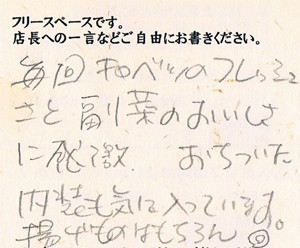 フリースペースです。
店長への一言などご自由にお書きください。
毎回キャベツのフレッシュ
さと副菜のおいしさ
に感激 おちついた
内装も気に入っています。
揚げものはもちろん◎